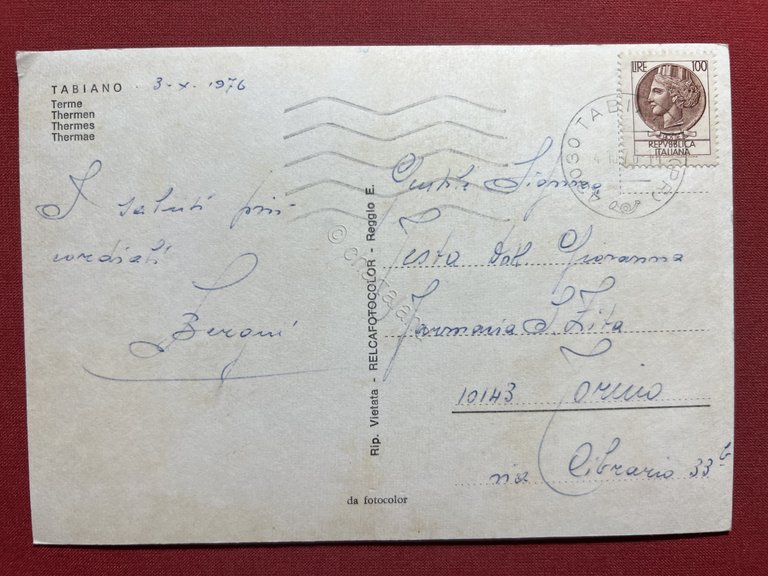 TABIANO · 3-X-1976
Terme
Thermen
Thermes
Thermae
I saluti più
cordiali
Rip. Vietata - RELCAFOTOCOLOR - Reggio E.
da fotocolor
LIRE 100
REPVBBLICA
ITALIANA
Gentile Signora
Testa Dott. Giovanna
Farmacia S. Zita
10143 Torino
via Cibrario 33 b